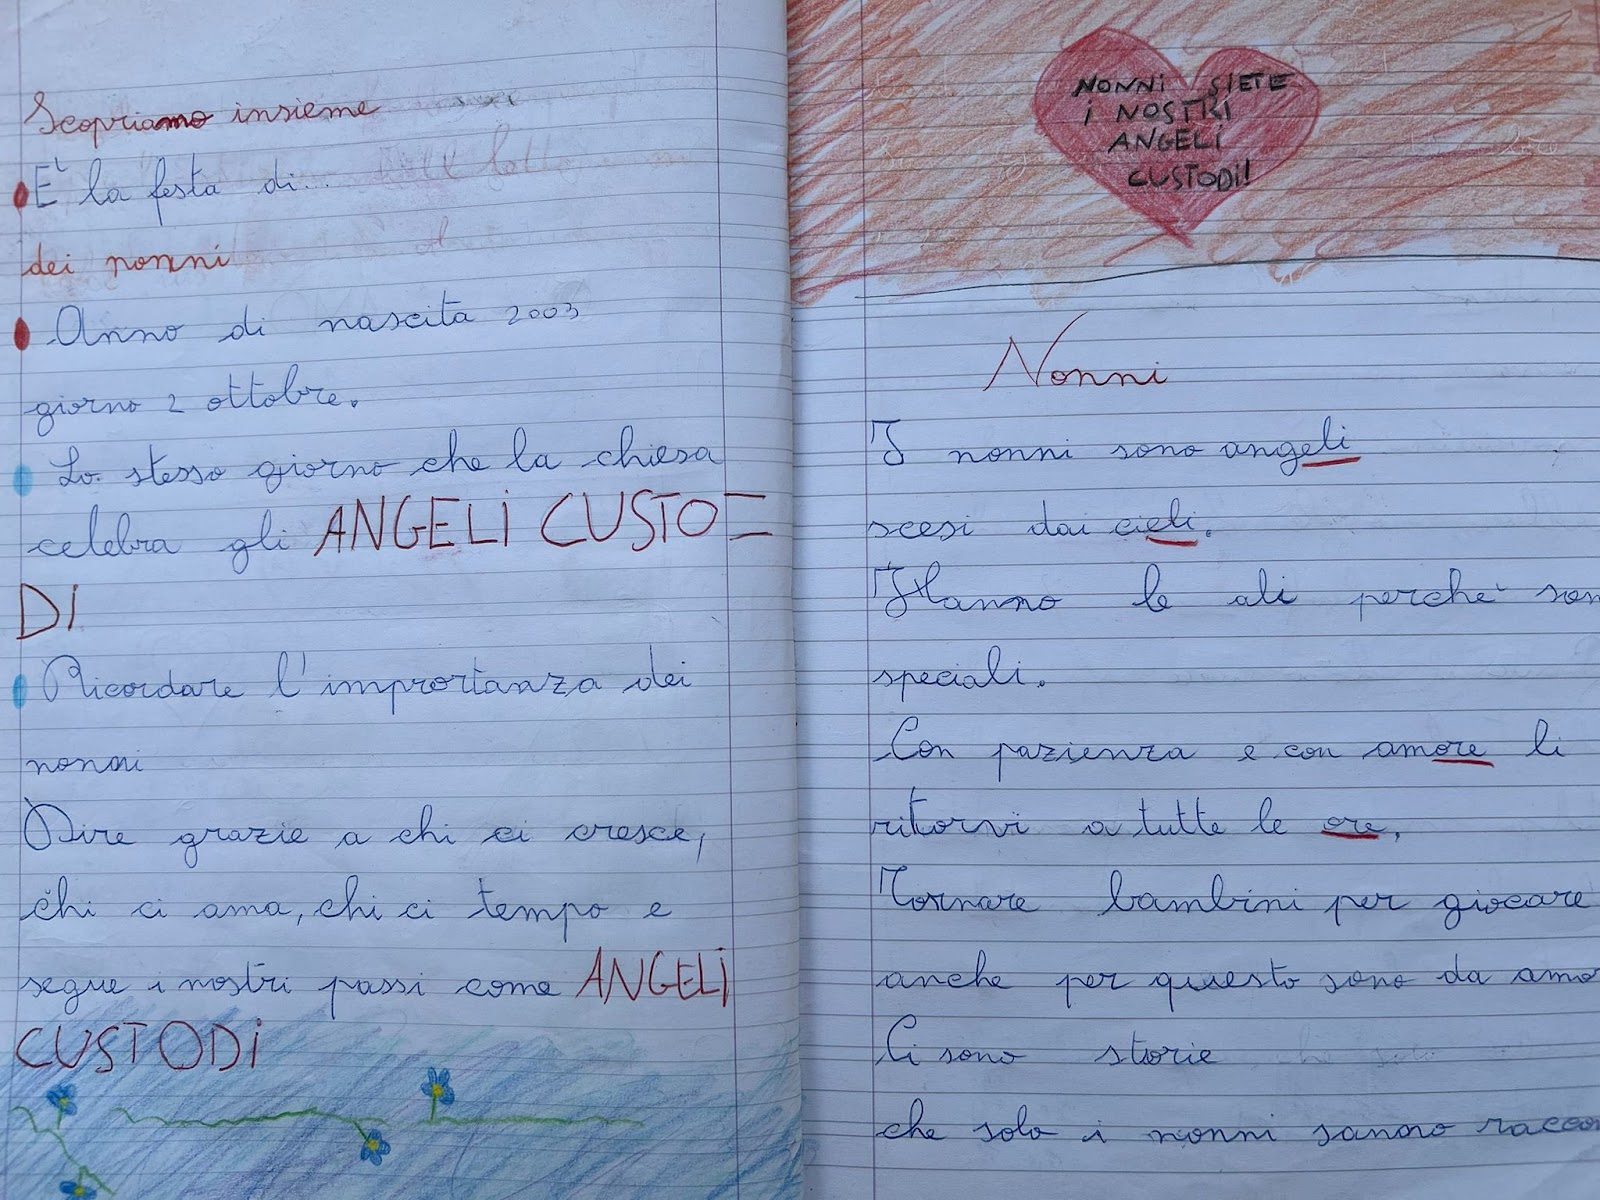 Scopriamo insieme
E' la festa di...
dei nonni
Anno di nascita 2003
giorno 2 ottobre.
Lo stesso giorno che la chiesa
celebra gli ANGELI CUSTO=
DI
Ricordare l'imprortanza dei
nonni
Dire grazie a chi ci cresce,
chi ci ama, chi ci tempo e
segue i nostri passi come ANGELI
CUSTODI
NONNI SIETE
I NOSTRI
ANGELI
CUSTODI!
Nonni
I nonni sono angeli
scesi dai cieli.
Hanno le ali perchè son
speciali.
Con pazienza e con amore li
ritorvi a tutte le ore,
Tornare bambini per giocare
anche per questo sono da amo
Ci sono storie
che solo i nonni sanno raccon